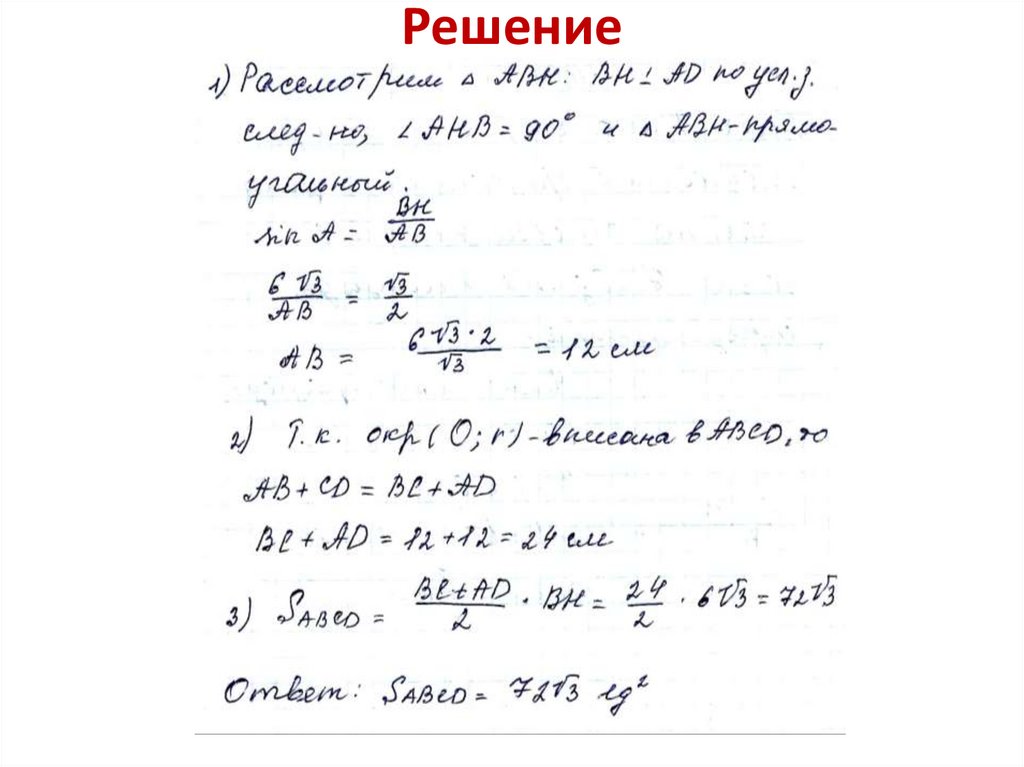 Решение
1) Рассмотрим △ ABH: BH ⊥ AD по усл.з.
след-но, ∠ AHB = 90° и △ ABH - прямо-
угольный.
sin A = BH/AB
6√3/AB = √3/2
AB = 6√3·2/√3 = 12 см
2) Т.к. окр (O; r) - вписана в ABCD, то
AB + CD = BC + AD
BC + AD = 12 + 12 = 24 см
3) SABCD = BC+AD/2 · BH = 24/2 · 6√3 = 72√3
Ответ: SABCD = 72√3 ед²